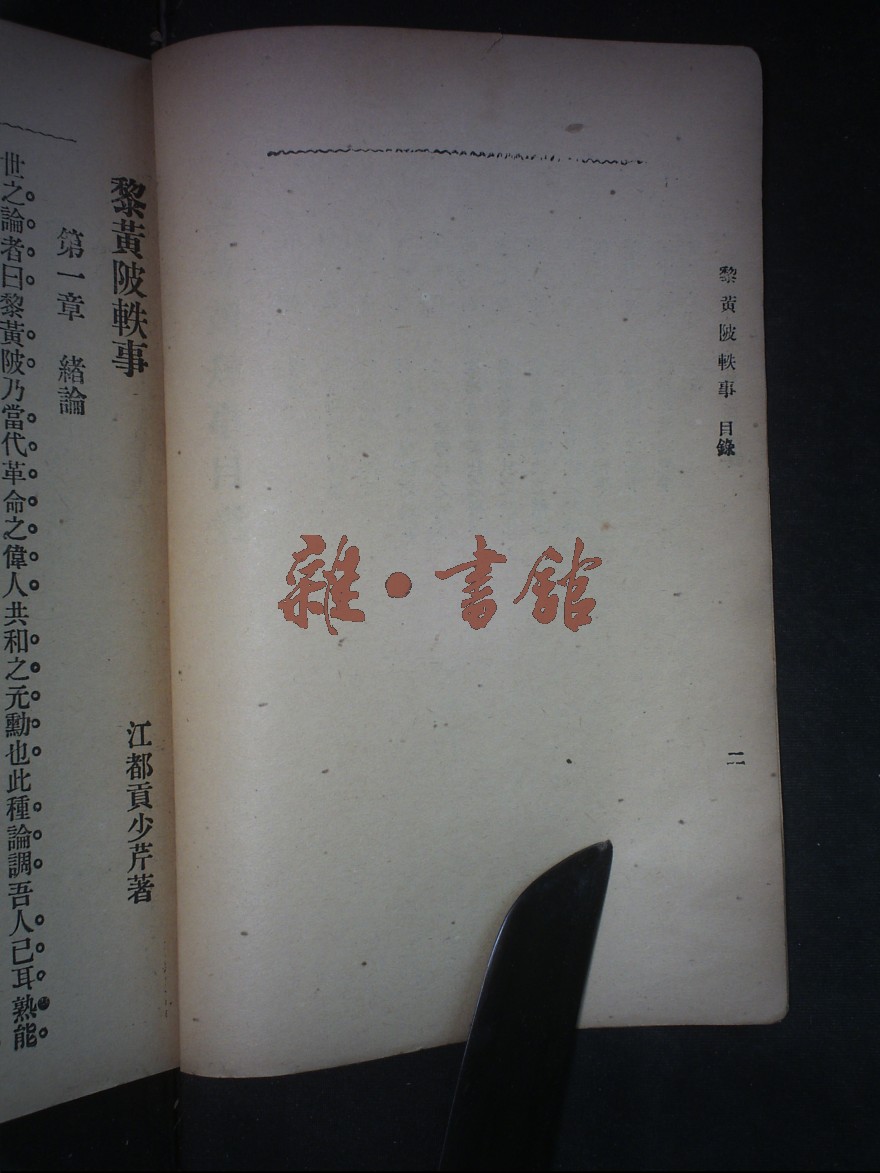 黎黃陂軼事 目錄
二
雜•書館
黎黃陂軼事
江都貢少芹著
第一章 緒論
世之論者曰黎黃陂乃當代革命之偉人共和之元勳也此種論調吾人已耳熟能